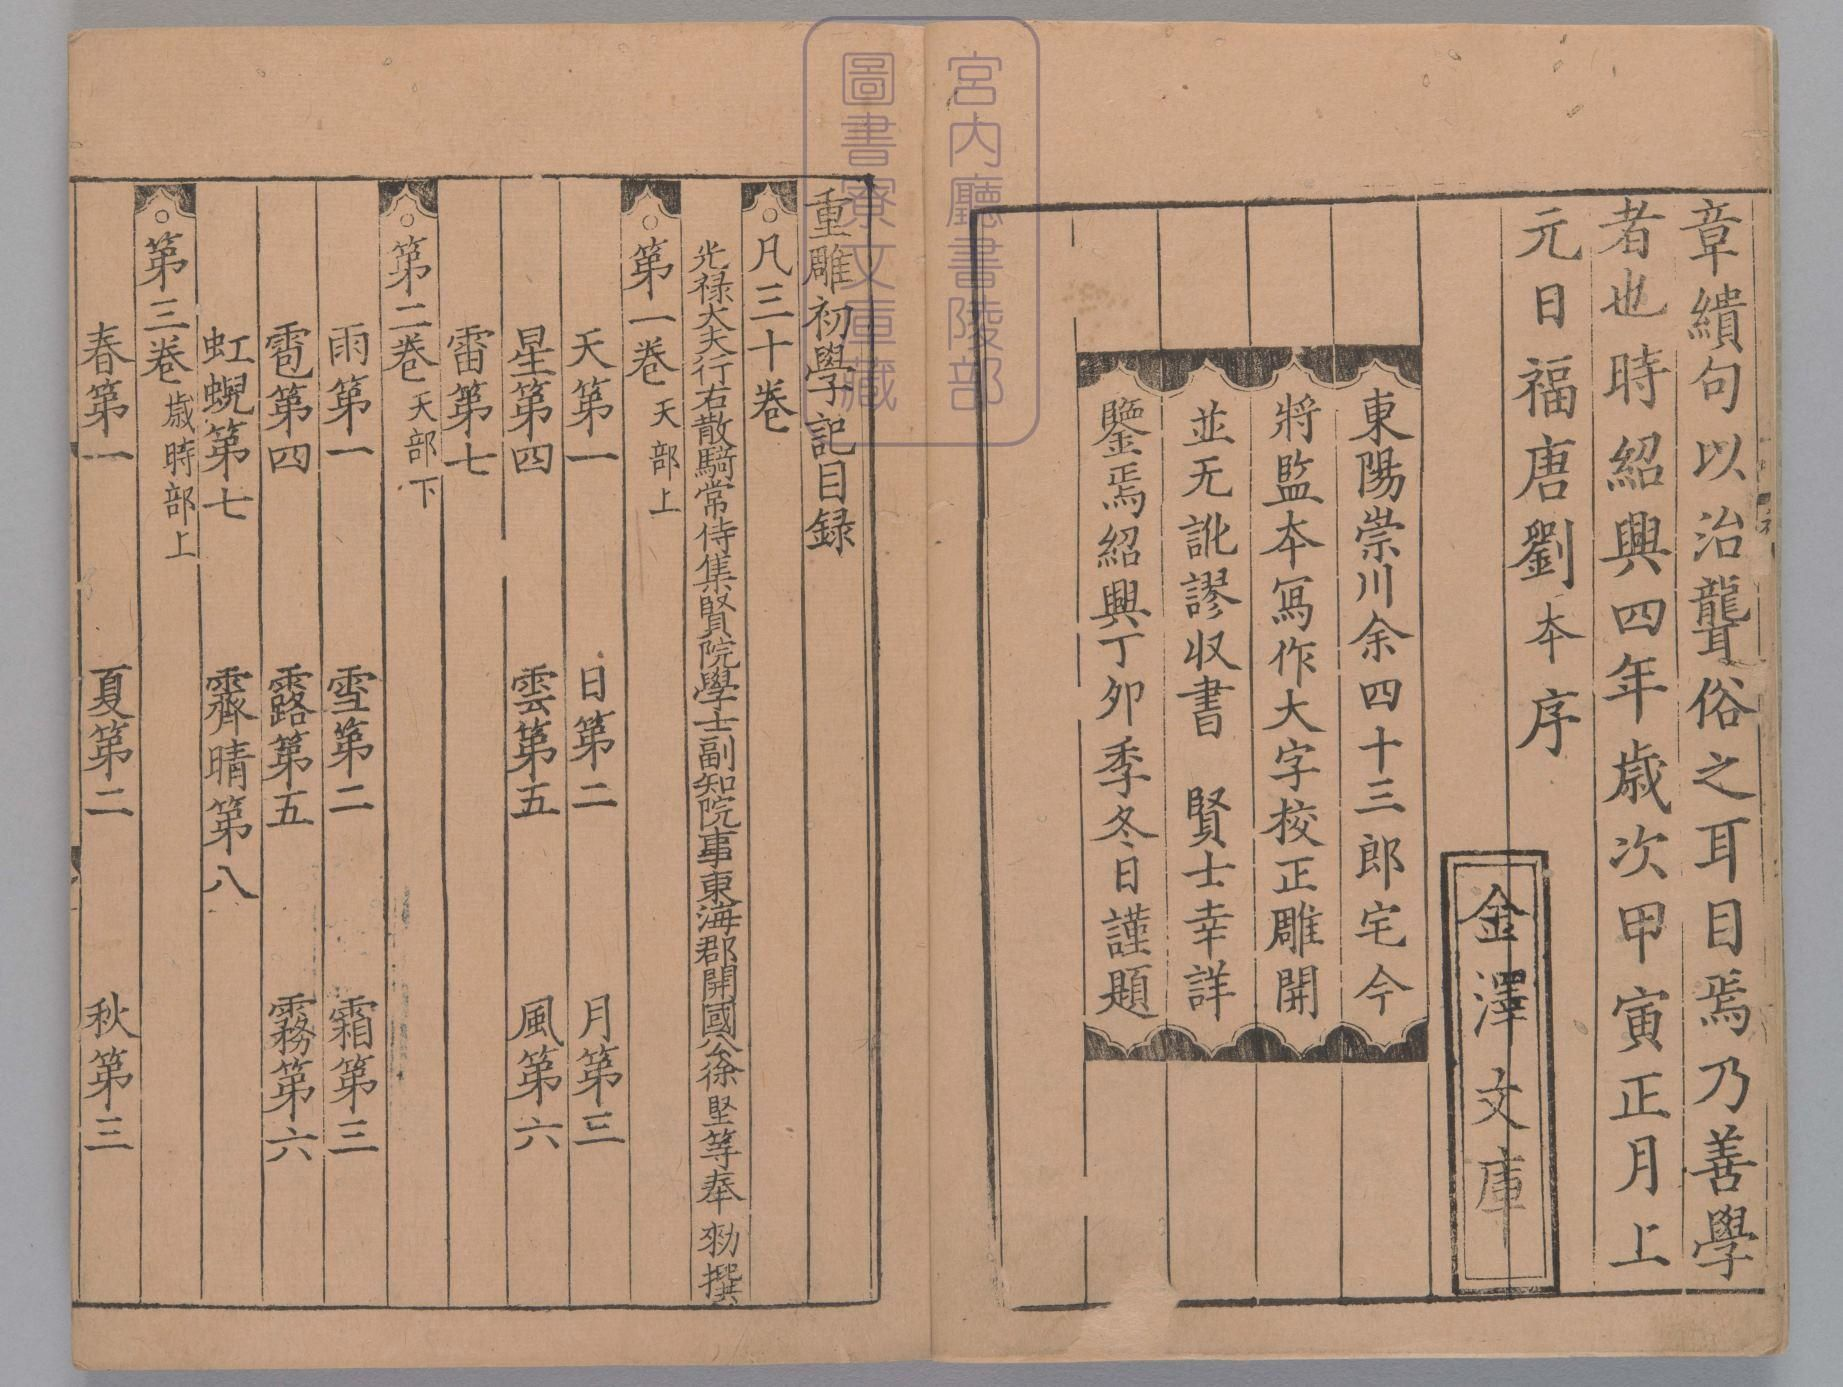 章繢句以治聾俗之耳目焉乃善學
者也時紹興四年歳次甲寅正月上
元日福唐劉本序
金澤文庫
東陽崇川余四十三郎宅今
將監本寫作大字校正雕開
並无訛謬收書　賢士幸詳
鑒焉紹興丁卯季冬日謹題
宮内廳書陵部
圖書寮文庫藏
重雕初學記目録
凡三十卷
光禄大夫行右散騎常侍集賢院學士副知院事東海郡開國公徐堅等奉　勑撰
第一卷　天部上
天第一　日第二　月第三
星第四　雲第五　風第六
雷第七
第二卷　天部下
雨第一　雪第二　霜第三
雹第四　露第五　霧第六
虹蜺第七　霽晴第八
第三卷　歳時部上
春第一　夏第二　秋第三